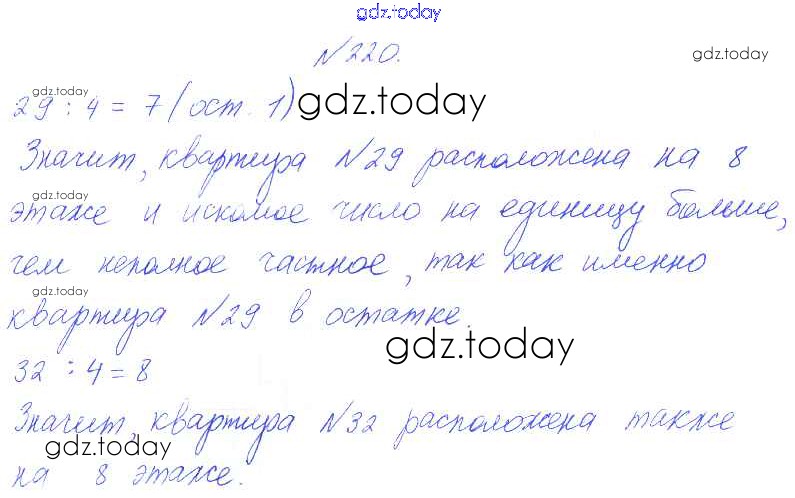 gdz.today
№220.
gdz.today
gdz.today
29 : 4 = 7 (ост. 1)
gdz.today
Значит, квартира №29 расположена на 8
gdz.today
этаже и искомое число на единицу больше,
чем неполное частное, так как именно
gdz.today
квартира №29 в остатке.
gdz.today
32 : 4 = 8
Значит, квартира №32 расположена также
gdz.today
на 8 этаже.